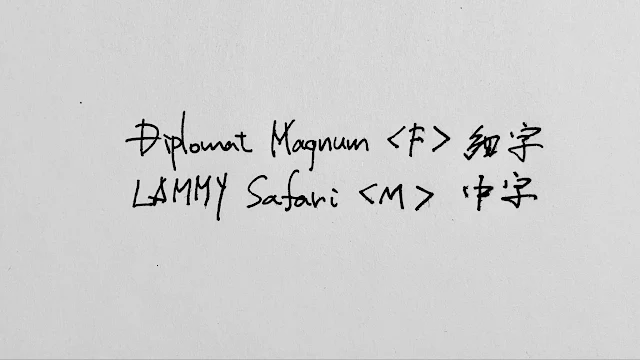 Diplomat Magnum <F> 細字
LAMMY Safari <M> 中字